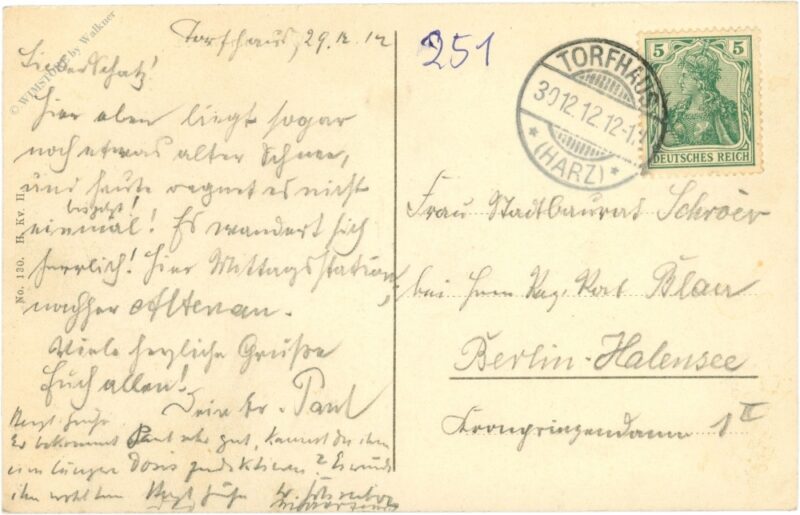 Torfhaus, 29.12.12
Lieber Schatz!
Hier oben liegt sogar
noch etwas alter Schnee,
und heute regnet es nicht
bis jetzt!
einmal! Es wandert sich
herrlich! Hier Mittagsstation,
nachher Altenau.
Viele herzliche Grüße
Euch allen!
Dein Paul
Er bekommt Paul sehr gut, kannst du ihm
eine längere Dosis
ihm
251
TORFHAUS
30.12.12.12-1
* (HARZ) *
5 5
DEUTSCHES REICH
Frau Stadtbaurat Schröer
bei Herrn Reg. Rat Blau
Berlin-Halensee
Kronprinzendamm 1 II
No. 130. H. Kv. H.
© WIMSTORE by Walkner